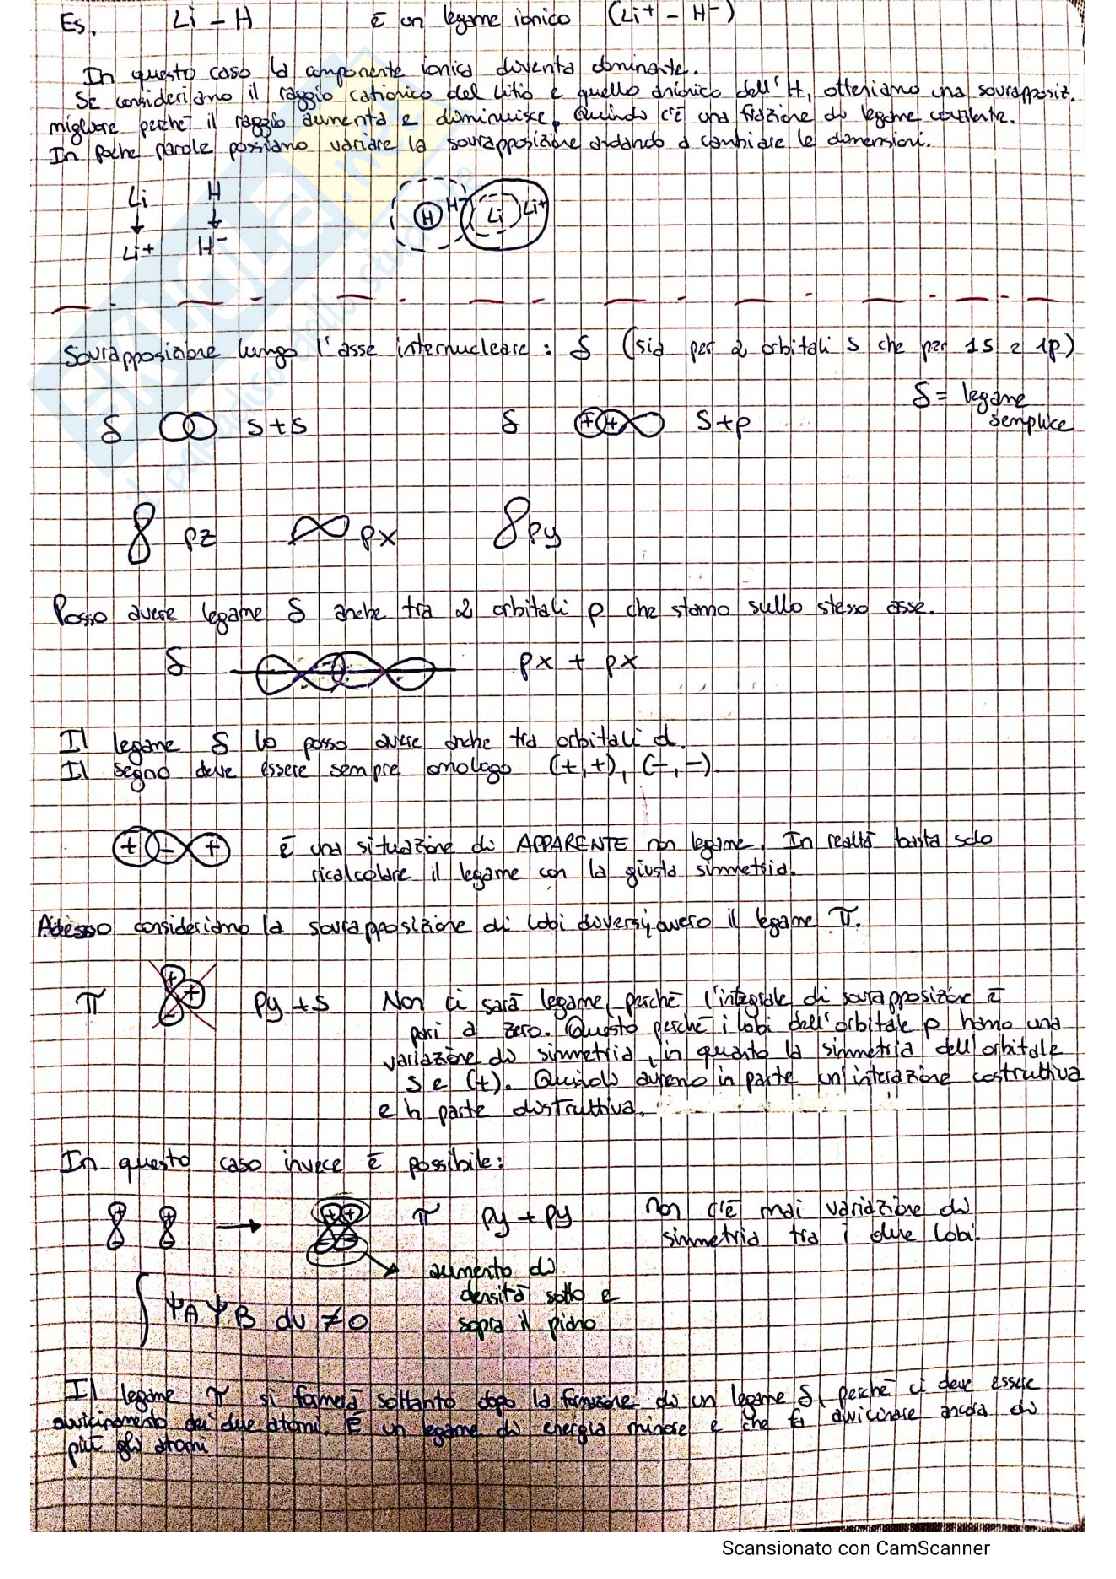 Es. Li - H È un legame ionico (Li+ - H-)
In questo caso la componente ionica diventa dominante.
Se consideriamo il raggio cationico del Litio e quello anionico dell'H, otteniamo una sovrapposiz.
migliore perchè il raggio aumenta e diminuisce, Quindi c'è una frazione di legame covalente.
In poche parole possiamo variare la sovrapposizione andando a cambiare le dimensioni.
Li H
Li+ H-
H H- Li Li+
Sovrapposizione lungo l'asse internucleare: δ (sia per 2 orbitali s che per 1s e 1p)
δ = legame
semplice
δ s+s δ + + s+p
pz px py
Posso avere legame δ anche tra 2 orbitali p che stanno sullo stesso asse.
δ px + px
Il legame δ lo posso avere anche tra orbitali d.
Il segno deve essere sempre omologo (+,+), (-,-)
+ - + È una situazione di APPARENTE non legame. In realtà basta solo
ricalcolare il legame con la giusta simmetria.
Adesso consideriamo la sovrapposizione di lobi diversi, ovvero il legame π.
π + + - py + s Non ci sarà legame, perchè l'integrale di sovrapposizione è
pari a zero. Questo perchè i lobi dell'orbitale p hanno una
variazione di simmetria, in quanto la simmetria dell'orbitale
s è (+). Quindi avremo in parte un'interazione costruttiva
e in parte distruttiva.
In questo caso invece è possibile:
+ - + - → + + - - π py + py non c'è mai variazione di
simmetria tra i due lobi.
aumento di
densità sotto e
sopra il piano
∫ ΨA ΨB dv ≠ 0
Il legame π si formerà soltanto dopo la formazione di un legame δ, perchè ci deve essere
avvicinamento dei due atomi. È un legame di energia minore e che fa avvicinare ancora di
più gli atomi
Scansionato con CamScanner